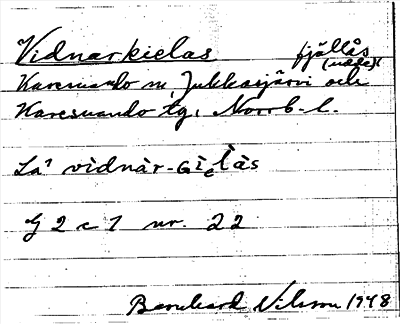 Vidnarkielas fjällås
(udde)
Karesuando sn, Jukkasjärvi och
Karesuando tg, Norrb. l.
La' vìdnàr-Gìe̯làs
G 2 c 1 nr. 22
Bernhard Nilsson 1948